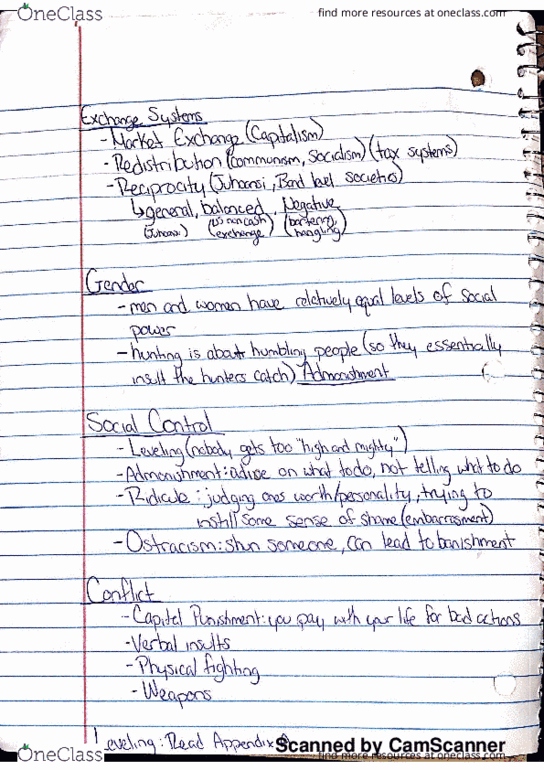 OneClass
find more resources at oneclass.com
Exchange Systems
- Market Exchange (Capitalism)
- Redistribution (communism, socialism) (tax systems)
- Reciprocity (Juhoansi, Band level societies)
↳ general, balanced, Negative
(Juhoansi) (US noncash exchange) (bartering, hangling)
Gender
- men and women have relatively equal levels of social
power
- hunting is about humbling people (so they essentially
insult the hunters catch) Admonishment
Social Control
- Leveling (nobody gets too "high and mighty")
- Admonishment: advise on what to do, not telling what to do
- Ridicule: judging ones worth/personality, trying to
instill some sense of shame (embarrasment)
- Ostracism: shun someone, can lead to banishment
Conflict
- Capital Punishment: you pay with your life for bad actions
- Verbal insults
- Physical fighting
- Weapons
Leveling: Read Appendix
Scanned by CamScanner
OneClass
find more resources at oneclass.com